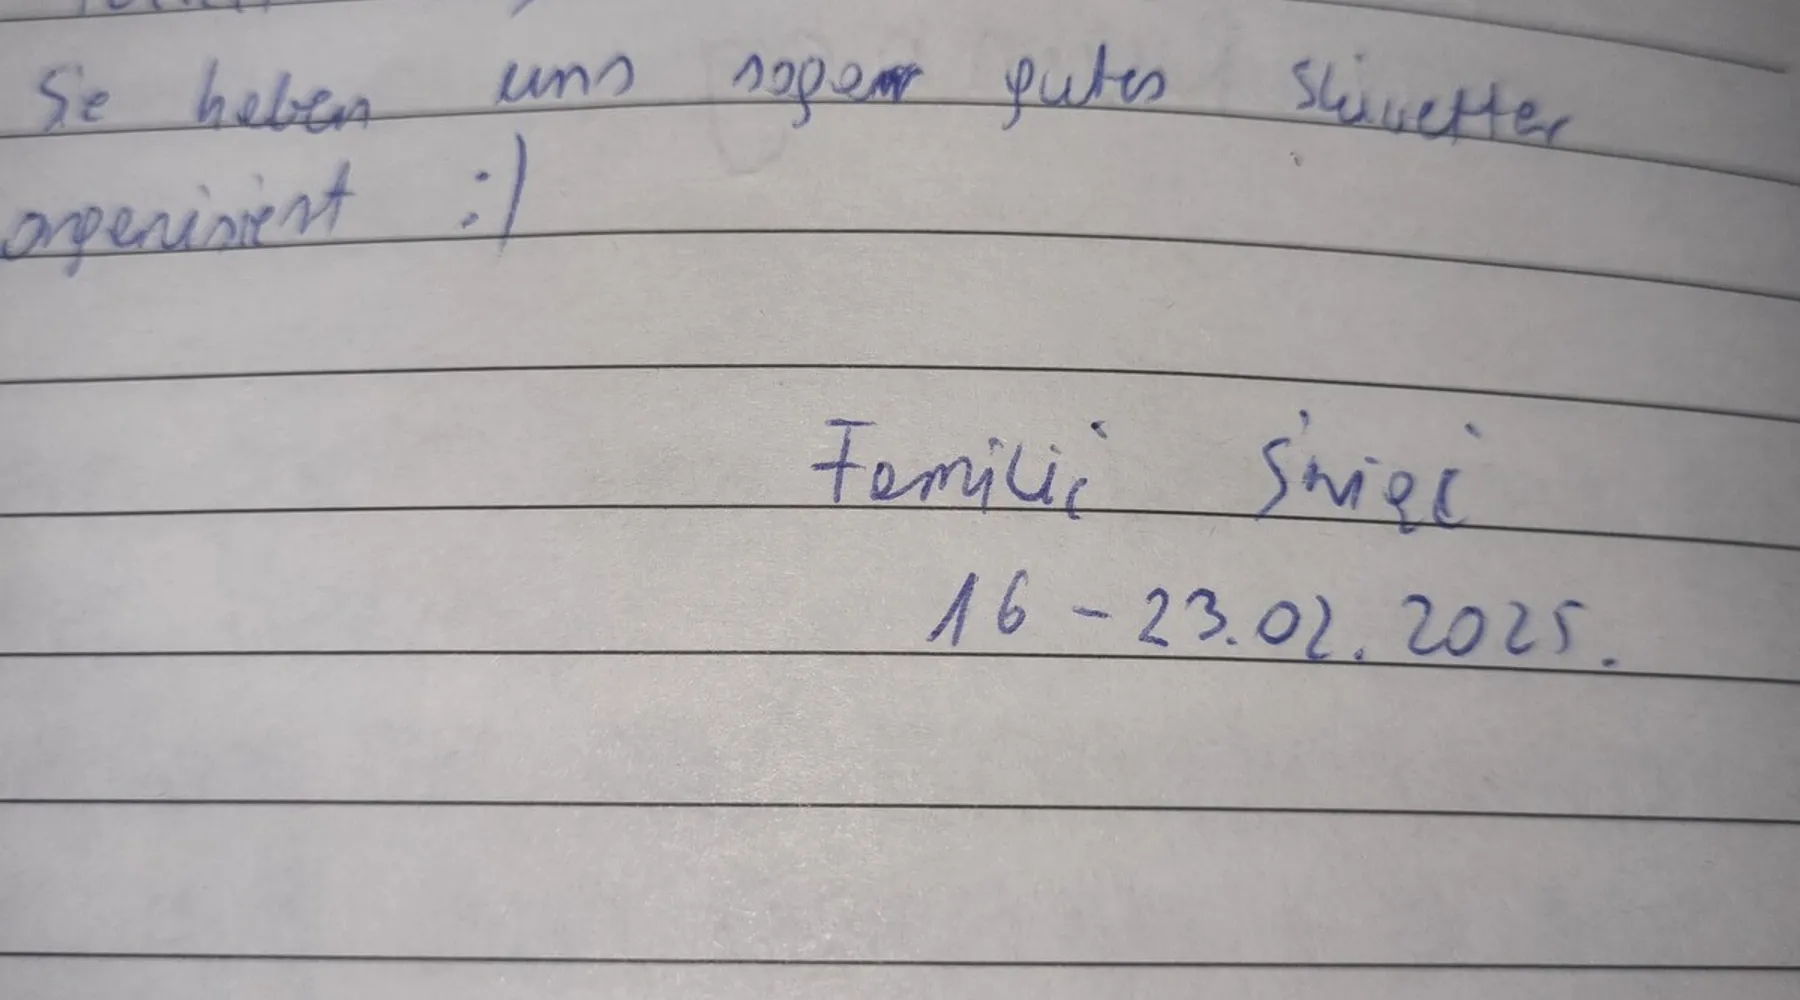 Sie haben uns sogar gutes Skiwetter
organisiert :)
Familie Święć
16 - 23.02.2025.